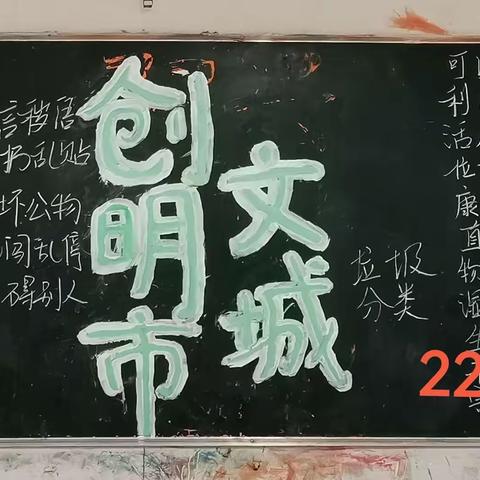 言秽语
扔乱贴
坏公物
闯乱停
得别人
创文明城市
垃圾
分类
可
利
活
位
康
直
物
湿
22